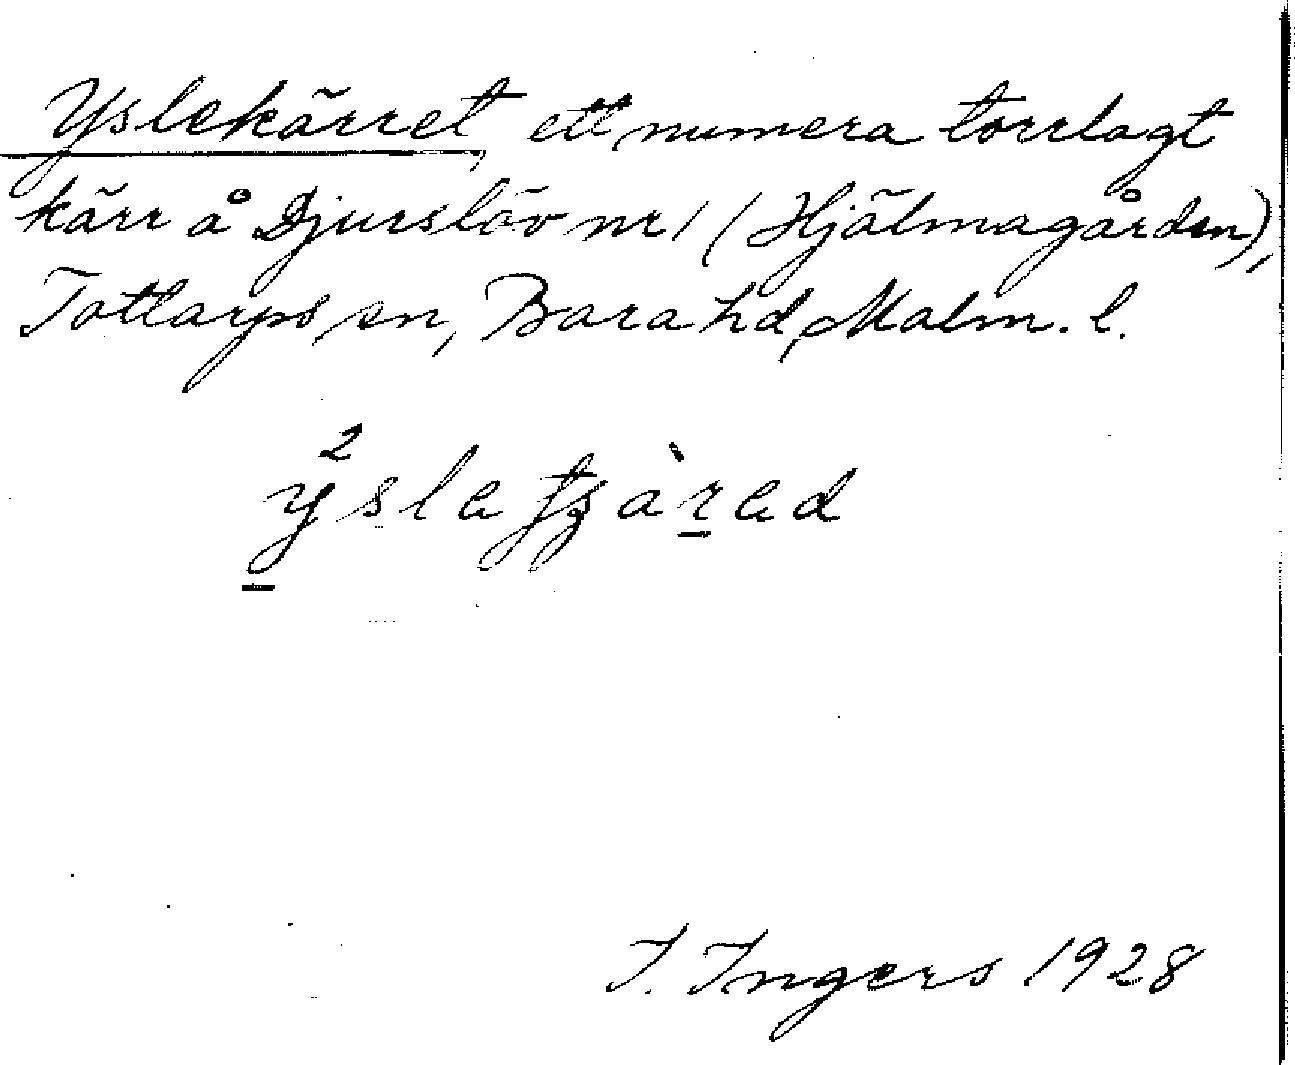 Yslekärret, ett numera torrlagt
kärr å Djurslöv nr 1 (Hjälmagården),
Tottarps sn, Bara hd, Malm. l.
I. Ingers 1928